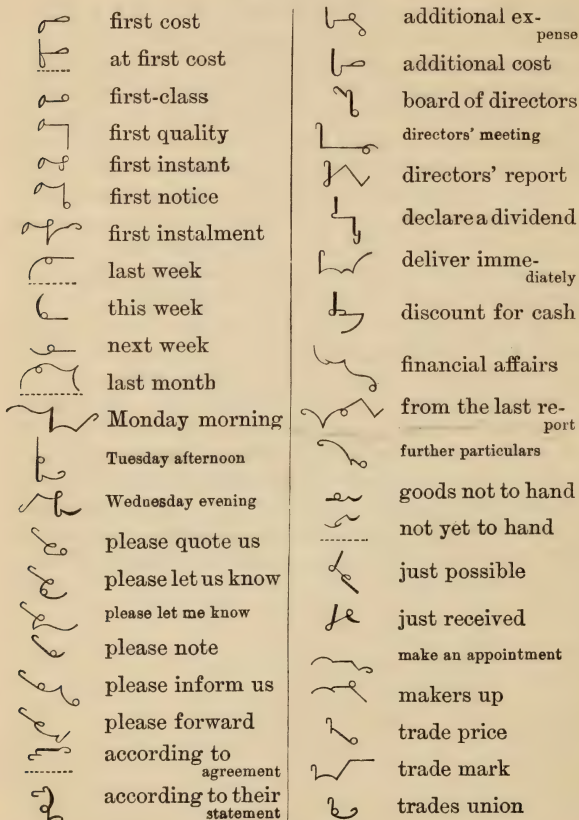 first cost
at first cost
first-class
first quality
first instant
first notice
first instalment
last week
this week
next week
last month
Monday morning
Tuesday afternoon
Wednesday evening
please quote us
please let us know
please let me know
please note
please inform us
please forward
according to
agreement
according to their
statement
additional ex-
pense
additional cost
board of directors
directors' meeting
directors' report
declare a dividend
deliver imme-
diately
discount for cash
financial affairs
from the last re-
port
further particulars
goods not to hand
not yet to hand
just possible
just received
make an appointment
makers up
trade price
trade mark
trades union